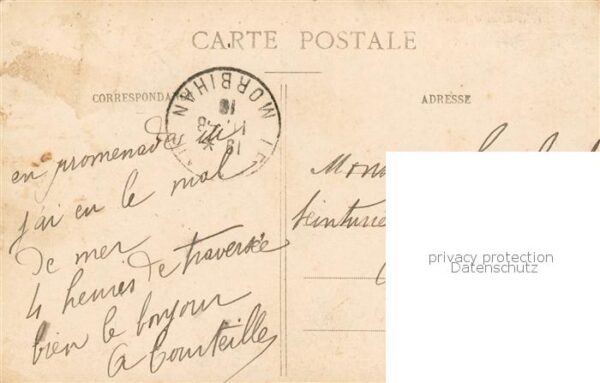 CARTE POSTALE
CORRESPONDAN
ADRESSE
MORBIHAN
en promenade ici
j'ai eu le mal
de mer
4 heures de traversée
bien le bonjour
A Bourteille
teinturie
privacy protection
Datenschutz